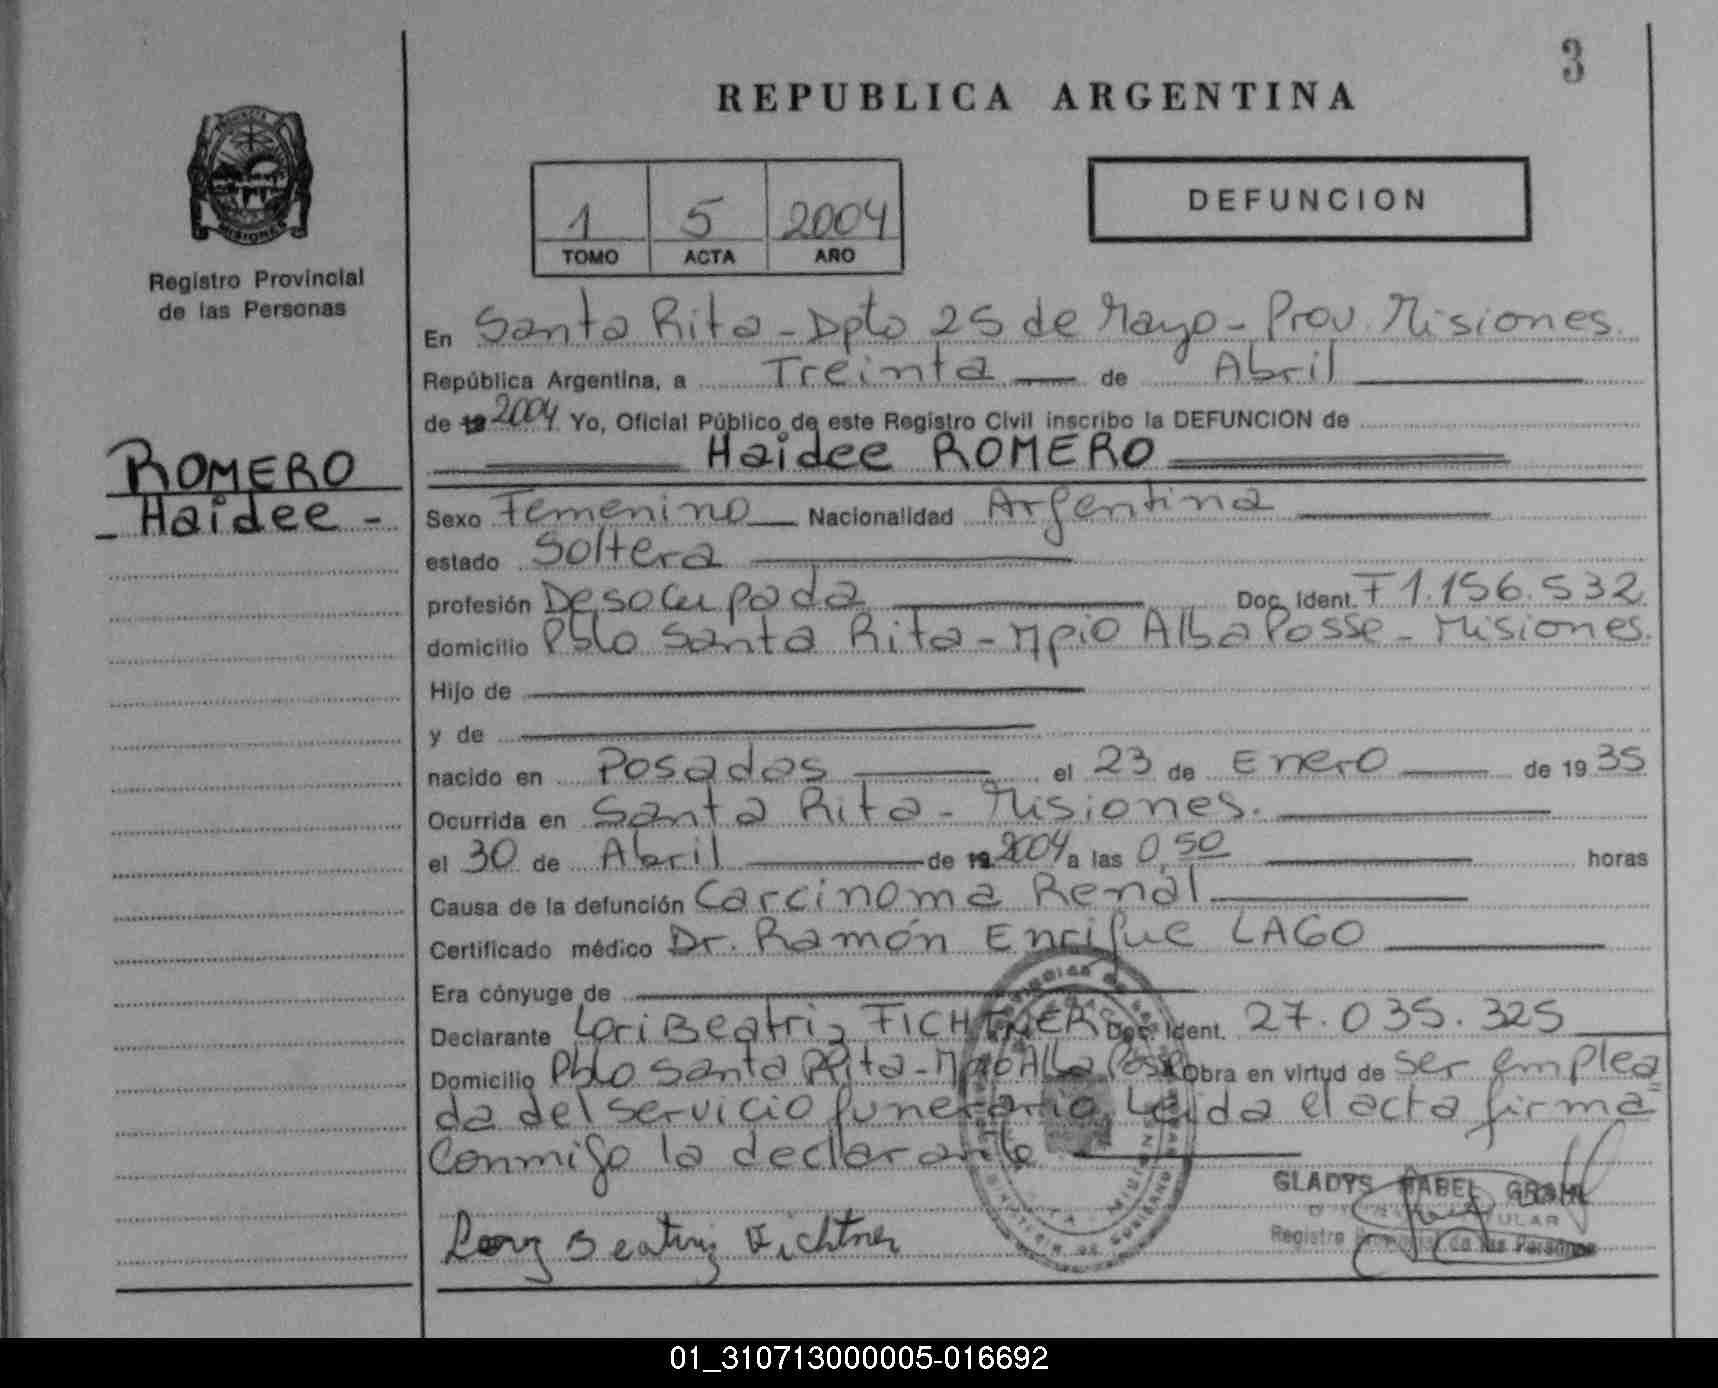 3
REPUBLICA ARGENTINA
DEFUNCION
1 5 2004
TOMO ACTA AÑO
MISIONES
Registro Provincial
de las Personas
En Santa Rita - Dpto 25 de Mayo - Prov. Misiones.
República Argentina, a Treinta de Abril
de 19 2004 Yo, Oficial Público de este Registro Civil inscribo la DEFUNCION de
Haidee ROMERO
ROMERO
- Haidee -
Sexo Femenino Nacionalidad Argentina
estado Soltera
profesión Desocupada Doc. Ident. F 1.156.532
domicilio Pblo Santa Rita - Mpio Alba Posse - Misiones.
Hijo de
y de
nacido en Posadas el 23 de Enero de 19 35
Ocurrida en Santa Rita - Misiones.
el 30 de Abril de 19 2004 a las 0,50 horas
Causa de la defunción Carcinoma Renal
Certificado médico Dr. Ramón Enrique LAGO
Era cónyuge de
Declarante Lori Beatriz FICHTNER Doc. Ident. 27.035.325
Domicilio Pblo Santa Rita - Mpio Alba Posse Obra en virtud de ser emplea
da del servicio funerario. Leida el acta firma
conmigo la declarante
GLADYS MABEL
Lory Beatriz Fichtner
Registro Provincial de las Personas
01_310713000005-016692